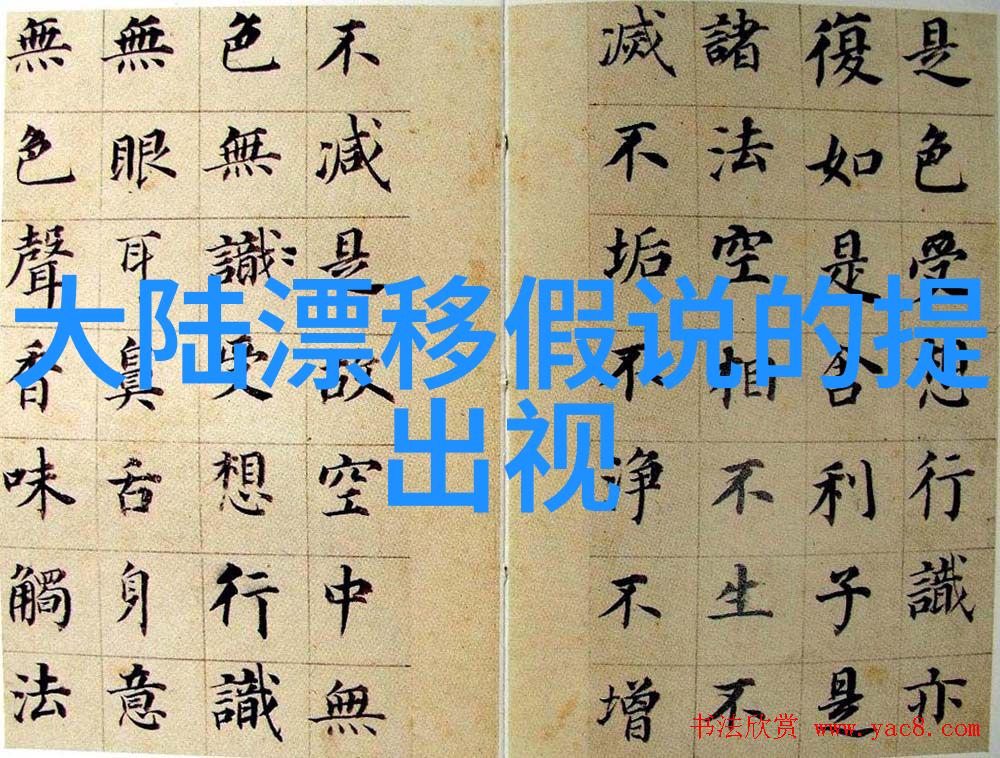 大陆漂移假说的提
出视
是色受想行識亦
復如是舍利子是
諸法空相不生不
滅不垢不淨不增
不減是故空中無
色無識受想行識
無眼耳鼻舌身意
無色聲香味觸法
书法欣赏 www.yac8.com